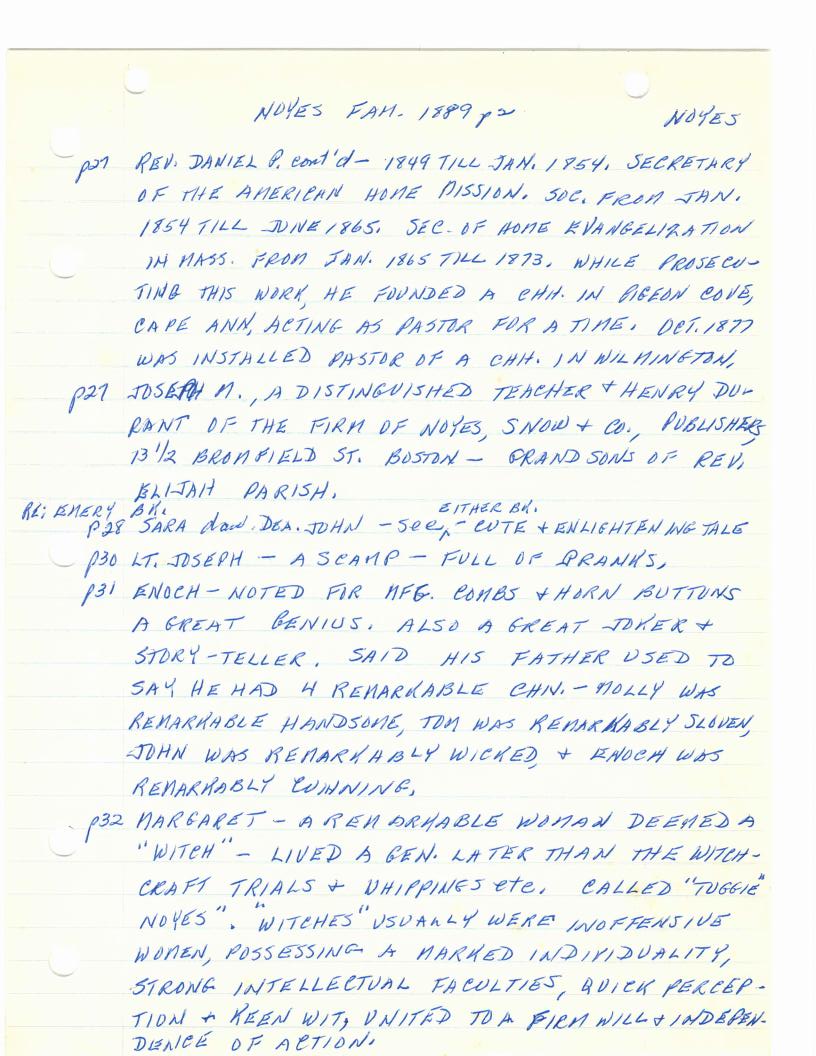 NOYES FAM. 1889 p2 NOYES
p27 REV. DANIEL P. cont'd - 1849 TILL JAN. 1854. SECRETARY
OF THE AMERICAN HOME MISSION. SOC. FROM JAN.
1854 TILL JUNE 1865. SEC. OF HOME EVANGELIZATION
IN MASS. FROM JAN. 1865 TILL 1873. WHILE PROSECU-
TING THIS WORK, HE FOUNDED A CHH. IN PIGEON COVE,
CAPE ANN, ACTING AS PASTOR FOR A TIME. OCT. 1877
WAS INSTALLED PASTOR OF A CHH. IN WILMINGTON,
p27 JOSEPH M., A DISTINGUISHED TEACHER + HENRY DU-
RANT OF THE FIRM OF NOYES, SNOW + CO., PUBLISHERS,
13 1/2 BROMFIELD ST. BOSTON - GRANDSONS OF REV.
ELIJAH PARISH.
RE: EMERY BK. EITHER BK.
p28 SARA dau. DEA. JOHN - see - CUTE + ENLIGHTENING TALE
p30 LT. JOSEPH - A SCAMP - FULL OF PRANKS.
p31 ENOCH - NOTED FOR MFG. COMBS + HORN BUTTONS
A GREAT GENIUS. ALSO A GREAT JOKER +
STORY-TELLER. SAID HIS FATHER USED TO
SAY HE HAD 4 REMARKABLE CHN. - MOLLY WAS
REMARKABLE HANDSOME, TOM WAS REMARKABLY SLOVEN,
JOHN WAS REMARKABLY WICKED, + ENOCH WAS
REMARKABLY CUNNING.
p32 MARGARET - A REMARKABLE WOMAN DEEMED A
"WITCH" - LIVED A GEN. LATER THAN THE WITCH-
CRAFT TRIALS + WHIPPINGS etc. CALLED "TUGGIE"
NOYES". "WITCHES" USUALLY WERE INOFFENSIVE
WOMEN, POSSESSING A MARKED INDIVIDUALITY,
STRONG INTELLECTUAL FACULTIES, QUICK PERCEP-
TION + KEEN WIT, UNITED TO A FIRM WILL + INDEPEN-
DENCE OF ACTION.